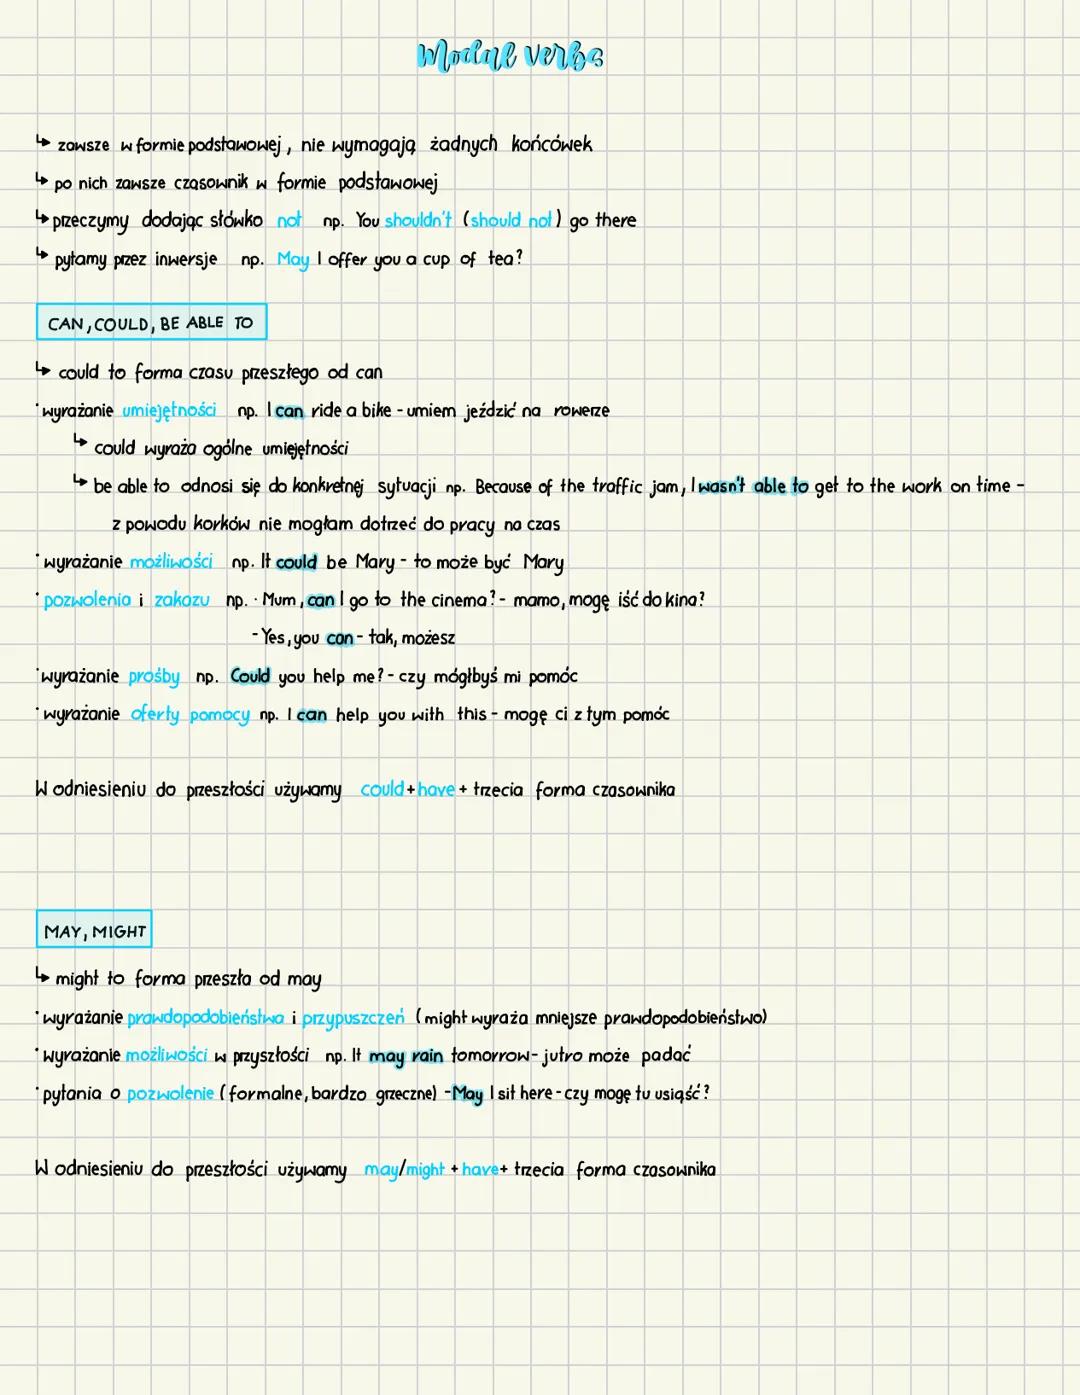 Modal verbs
↳ zawsze w formie podstawowej, nie wymagają żadnych końcówek
↳ po nich zawsze czasownik w formie podstawowej
↳ przeczymy dodając słówko not np. You shouldn't (should not) go there
↳ pytamy przez inwersje np. May I offer you a cup of tea?
CAN, COULD, BE ABLE TO
↳ could to forma czasu przeszłego od can
· wyrażanie umiejętności np. I can ride a bike - umiem jeździć na rowerze
↳ could wyraża ogólne umiejętności
↳ be able to odnosi się do konkretnej sytuacji np. Because of the traffic jam, I wasn't able to get to the work on time -
z powodu korków nie mogłam dotrzeć do pracy na czas
· wyrażanie możliwości np. It could be Mary - to może być Mary
· pozwolenia i zakazu np. · Mum, can I go to the cinema? - mamo, mogę iść do kina?
- Yes, you can - tak, możesz
· wyrażanie prośby np. Could you help me? - czy mógłbyś mi pomóc
· wyrażanie oferty pomocy np. I can help you with this - mogę ci z tym pomóc
W odniesieniu do przeszłości używamy could + have + trzecia forma czasownika
MAY, MIGHT
↳ might to forma przeszła od may
· wyrażanie prawdopodobieństwa i przypuszczeń (might wyraża mniejsze prawdopodobieństwo)
· wyrażanie możliwości w przyszłości np. It may rain tomorrow - jutro może padać
· pytania o pozwolenie (formalne, bardzo grzeczne) - May I sit here - czy mogę tu usiąść?
W odniesieniu do przeszłości używamy may/might + have + trzecia forma czasownika